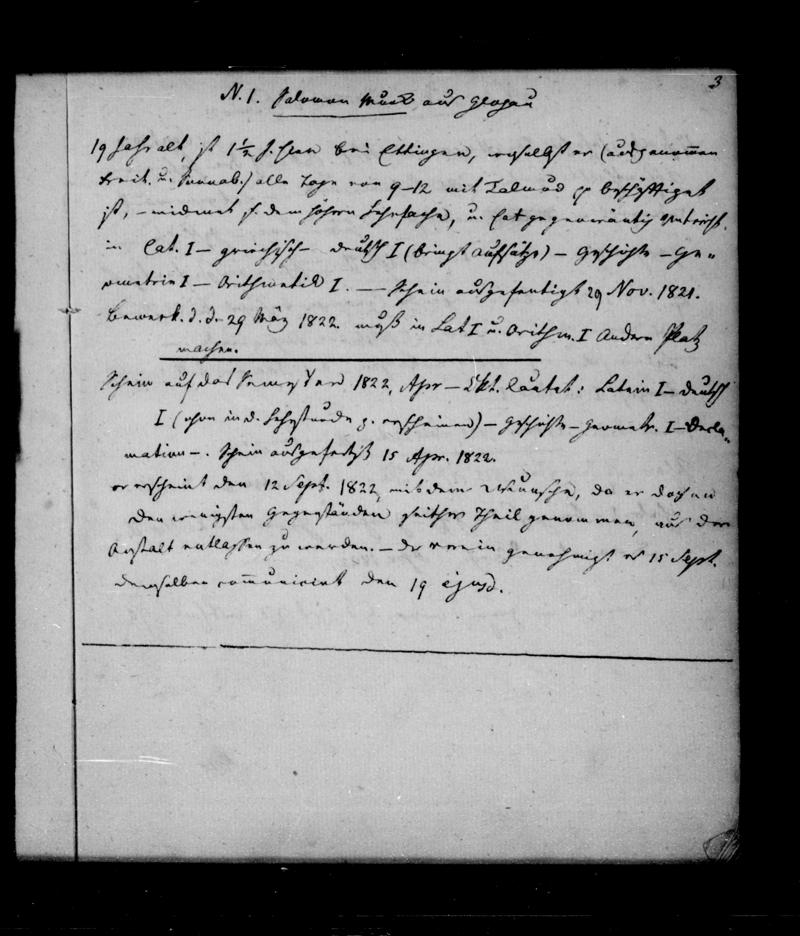 3
N. 1. Salomon Munk aus Glogau
19 Jahr alt, ist 1 1/2 J. hier bei Ettingen, woselbst er (ausgenommen
Freit. u. Sonnab.) alle Tage von 9–12 mit Talmud beschäftiget
ist, – widmet s. dem höhern Lehrfache, u. hat gegenwärtig Unterricht
in Lat. I – griechisch – deutsch I (bringt Aufsätze) – Geschichte – Ge-
ometrie I – Arithmetik I. – Schein ausgefertigt 29 Nov. 1821.
Bemerk. d. d. 29 März 1822. muß in Lat I u. Arithm. I Andern Platz
machen.
Schein auf das Semester 1822, Apr – Okt. lautet: Latein I – deutsch
I (schon in d. Lehrstunde z. erscheinen) – Geschichte – Geometr. I – Decla-
mation –. Schein ausgefertigt 15 Apr. 1822.
er erscheint den 12 Sept. 1822 mit dem Wunsche, da er doch an
den wenigsten Gegenständen zeither Theil genommen, aus der
Anstalt entlassen zu werden. – Der Verein genehmigt es 15 Sept.
demselben communicirt den 19 ejusd.